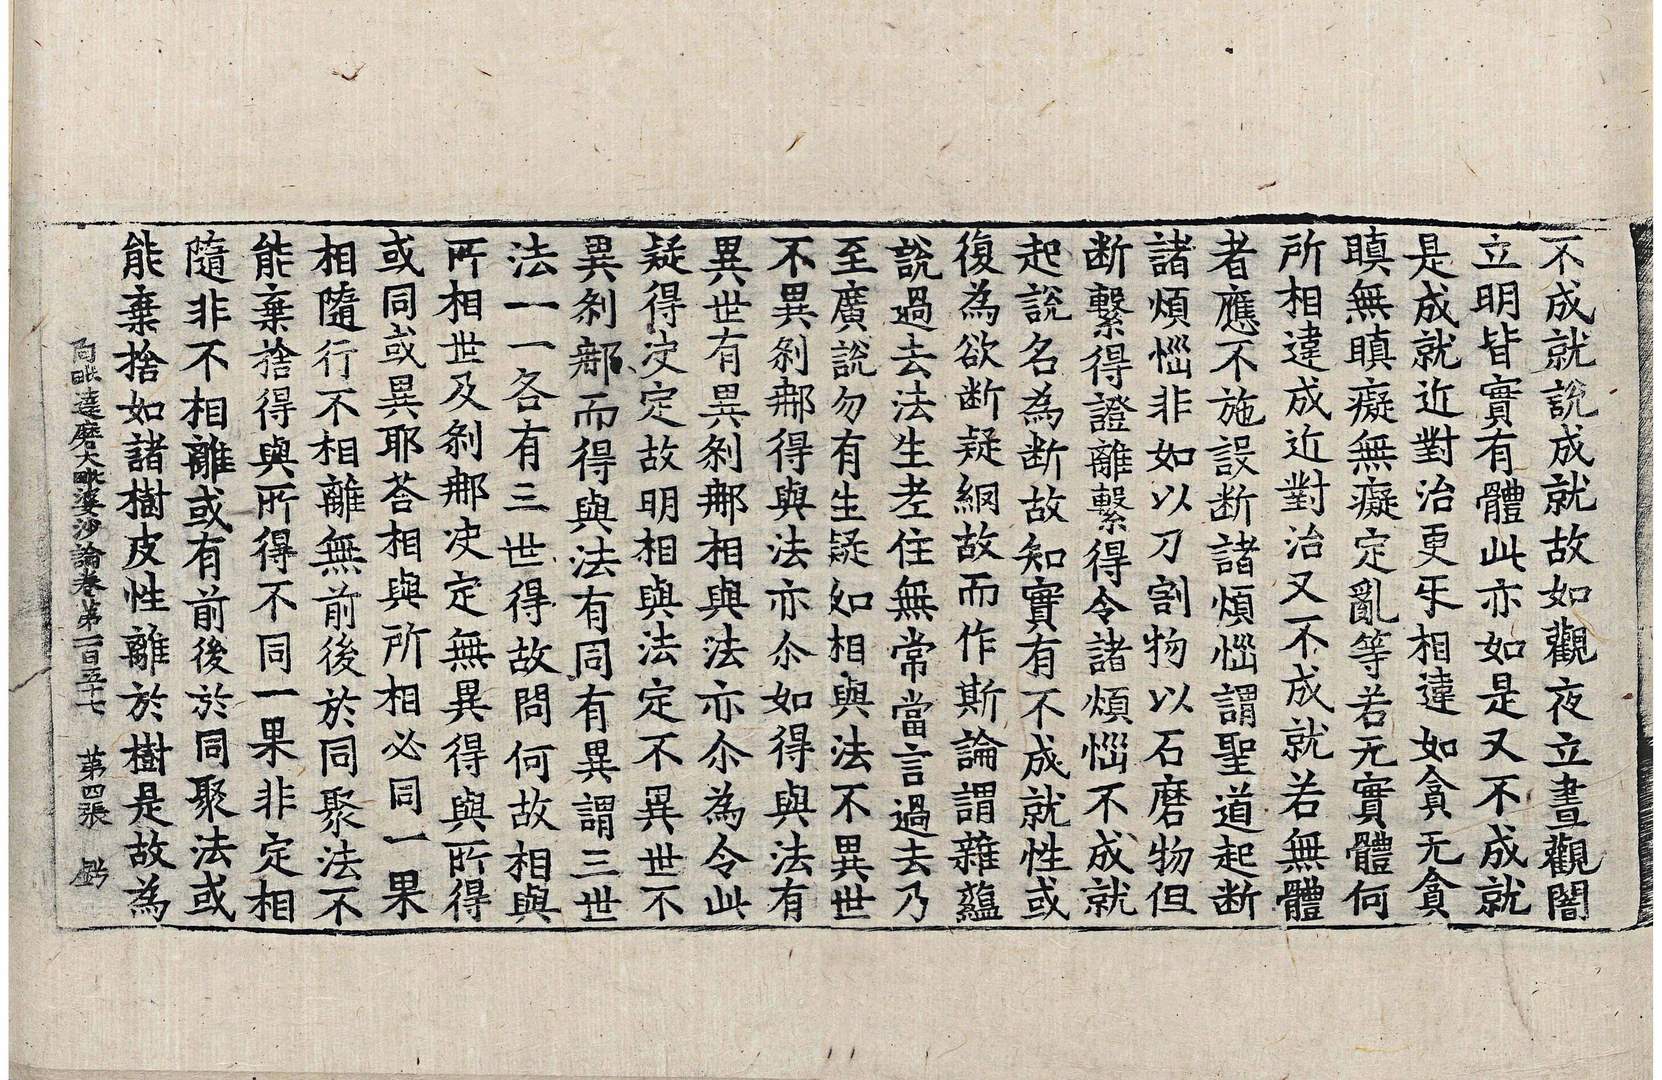 不成就說成就故如觀夜立晝觀闇
立明皆實有體此亦如是又不成就
是成就近對治更互相違如貪无貪
瞋無瞋癡無癡定亂等若无實體何
所相違成近對治又不成就若無體
者應不施設断諸煩惱謂聖道起断
諸煩惱非如以刀割物以石磨物但
断繫得證離繫得令諸煩惱不成就
起說名為断故知實有不成就性或
復為欲断疑網故而作斯論謂雜蘊
說過去法生老住無常當言過去乃
至廣說勿有生疑如相與法不異世
不異剎那得與法亦尒如得與法有
異世有異剎那相與法亦尒為令此
疑得决定故明相與法定不異世不
異剎那而得與法有同有異謂三世
法一一各有三世得故問何故相與
所相世及剎那决定無異得與所得
或同或異耶荅相與所相必同一果
相隨行不相離無前後於同聚法不
能棄捨得與所得不同一果非定相
隨非不相離或有前後於同聚法或
能棄捨如諸樹皮性離於樹是故為
阿毗達磨大毗婆沙論卷第一百五十七 第四張